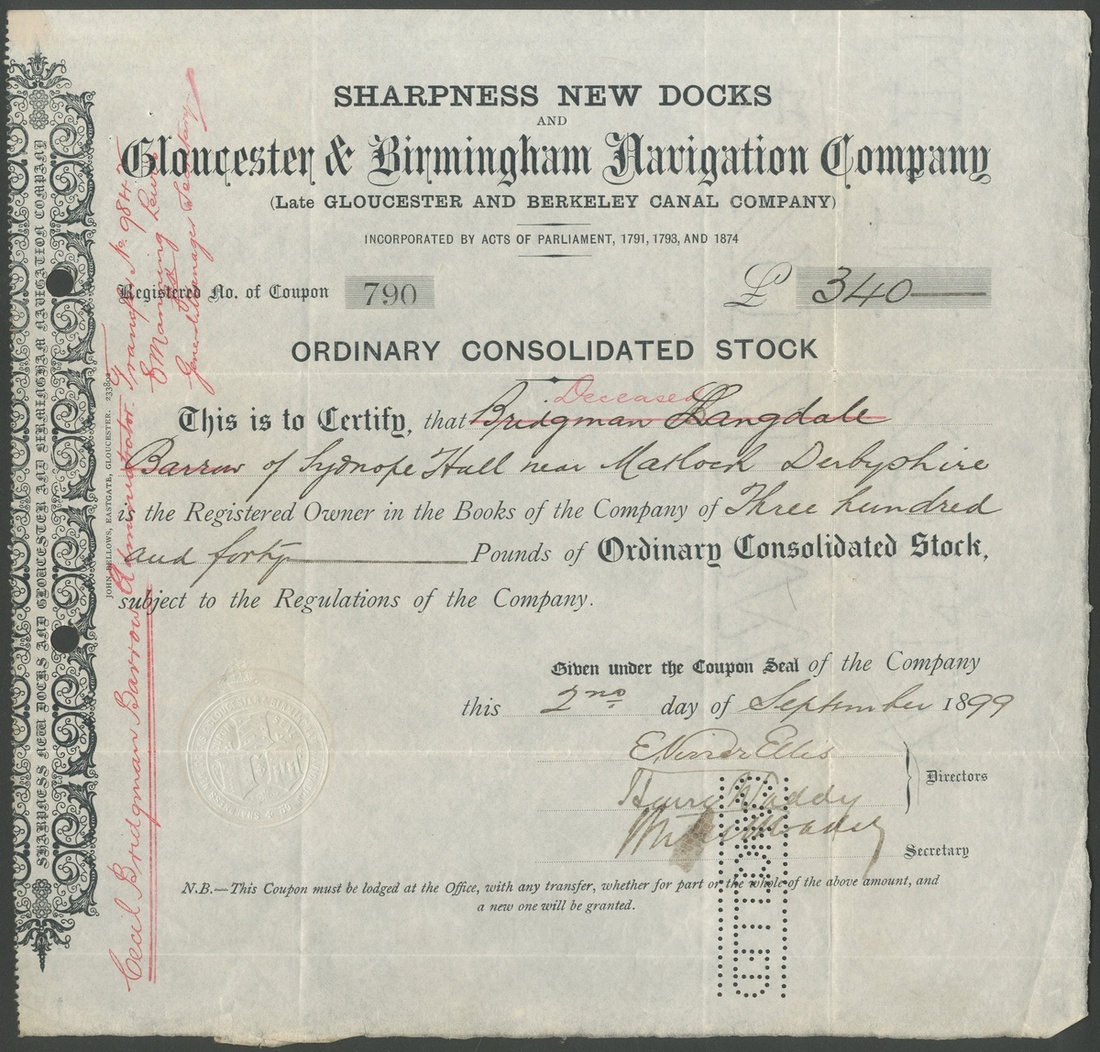 SHARPNESS NEW DOCKS
AND
Gloucester & Birmingham Navigation Company
(Late GLOUCESTER AND BERKELEY CANAL COMPANY)
INCORPORATED BY ACTS OF PARLIAMENT, 1791, 1793, AND 1874
Registered No. of Coupon 790 £ 340
ORDINARY CONSOLIDATED STOCK
Deceased
This is to Certify, that Bridgman Langdale
Barrow of Sydnope Hall near Matlock Derbyshire
is the Registered Owner in the Books of the Company of Three hundred
and forty Pounds of Ordinary Consolidated Stock,
subject to the Regulations of the Company.
Given under the Coupon Seal of the Company
this 2nd day of September 1899
Henry Waddy
Directors
Secretary
N.B.—This Coupon must be lodged at the Office, with any transfer, whether for part or the whole of the above amount, and
a new one will be granted.
CANCELLED
SHARPNESS NEW DOCKS AND GLOUCESTER AND BIRMINGHAM NAVIGATION COMPANY
JOHN BELLOWS, EASTGATE, GLOUCESTER.
Cecil Bridgman Barrow Administrator. Transfer No.
General Manager & Secretary